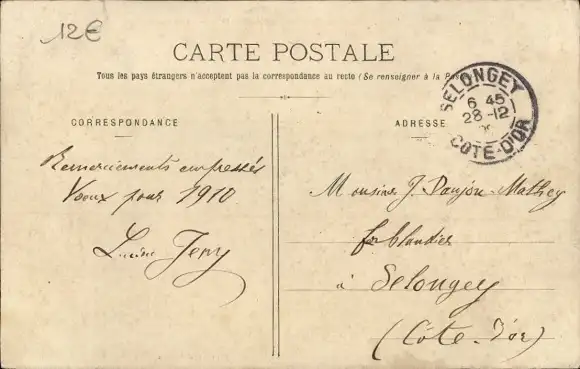 12€
CARTE POSTALE
Tous les pays étrangers n'acceptent pas la correspondance au recto (Se renseigner à la Poste)
SELONGEY
6 45
28 -12
COTE-D'OR
CORRESPONDANCE
ADRESSE
Remerciements empressés
Voeux pour 1910
Monsieur J. Donjon-Mathey
ferblantier
à Selongey
(Côte-d'or)